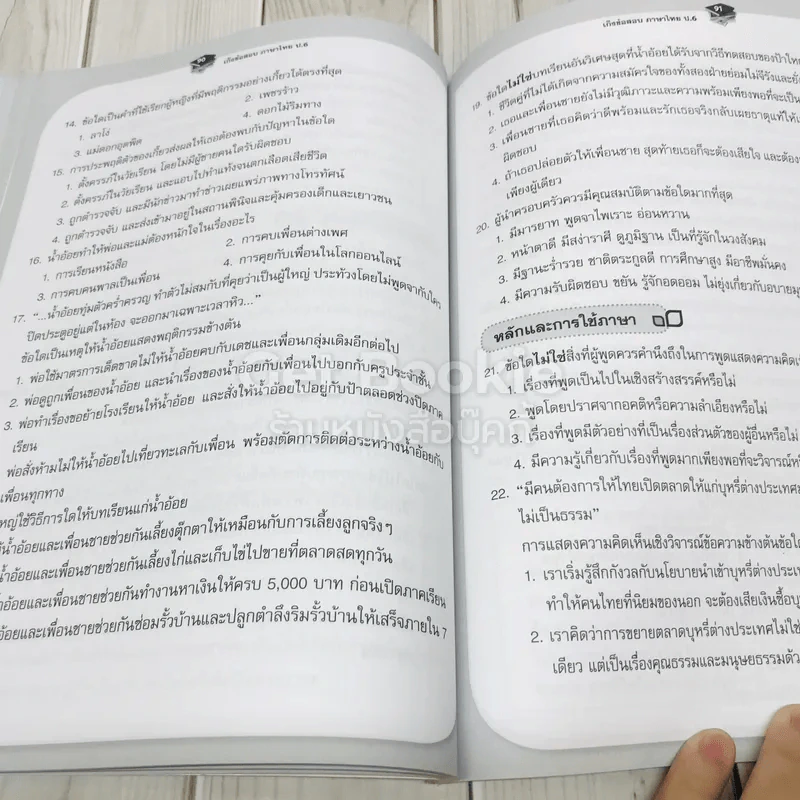 90 เก็งข้อสอบ ภาษาไทย ป.6
14. ข้อใดเป็นคำที่ใช้เรียกผู้หญิงที่มีพฤติกรรมอย่างเกี้ยวได้ตรงที่สุด
1. ลาโง่ 2. เพชรร้าว
3. แม่ดอกอุตพิด 4. ดอกไม้ริมทาง
15. การประพฤติตัวของเกี้ยวส่งผลให้เธอต้องพบกับปัญหาในข้อใด
1. ตั้งครรภ์ในวัยเรียน โดยไม่มีผู้ชายคนใดรับผิดชอบ
2. ตั้งครรภ์ในวัยเรียน และแอบไปทำแท้งจนตกเลือดเสียชีวิต
3. ถูกตำรวจจับ และมีนักข่าวมาทำข่าวเผยแพร่ภาพทางโทรทัศน์
4. ถูกตำรวจจับ และส่งเข้ามาอยู่ในสถานพินิจและคุ้มครองเด็กและเยาวชน
16. น้ำอ้อยทำให้พ่อและแม่ต้องหนักใจในเรื่องอะไร
1. การเรียนหนังสือ 2. การคบเพื่อนต่างเพศ
3. การคบคนพาลเป็นเพื่อน 4. การคุยกับเพื่อนในโลกออนไลน์
17. “...น้ำอ้อยทุ่มตัวคร่ำครวญ ทำตัวไม่สมกับที่คุยว่าเป็นผู้ใหญ่ ประท้วงโดยไม่พูดจากับใคร
ปิดประตูอยู่แต่ในห้อง จะออกมาเฉพาะเวลาหิว...”
ข้อใดเป็นเหตุให้น้ำอ้อยแสดงพฤติกรรมข้างต้น
1. พ่อใช้มาตรการเด็ดขาดไม่ให้น้ำอ้อยคบกับเดชและเพื่อนกลุ่มเดิมอีกต่อไป
2. พ่อดูถูกเพื่อนของน้ำอ้อย และนำเรื่องของน้ำอ้อยกับเพื่อนไปบอกกับครูประจำชั้น
3. พ่อทำเรื่องขอย้ายโรงเรียนให้น้ำอ้อย และสั่งให้น้ำอ้อยไปอยู่กับป้าตลอดช่วงปิดภาค
เรียน
พ่อสั่งห้ามไม่ให้น้ำอ้อยไปเที่ยวทะเลกับเพื่อน พร้อมตัดการติดต่อระหว่างน้ำอ้อยกับ
เพื่อนทุกทาง
ใหญ่ใช้วิธีการใดให้บทเรียนแก่น้ำอ้อย
น้ำอ้อยและเพื่อนชายช่วยกันเลี้ยงตุ๊กตาให้เหมือนกับการเลี้ยงลูกจริงๆ
น้ำอ้อยและเพื่อนชายช่วยกันเลี้ยงไก่และเก็บไข่ไปขายที่ตลาดสดทุกวัน
อ้อยและเพื่อนชายช่วยกันทำงานหาเงินให้ครบ 5,000 บาท ก่อนเปิดภาคเรียน
อ้อยและเพื่อนชายช่วยกันซ่อมรั้วบ้านและปลูกตำลึงริมรั้วบ้านให้เสร็จภายใน 7
91 เก็งข้อสอบ ภาษาไทย ป.6
19. ข้อใดไม่ใช่บทเรียนอันวิเศษสุดที่น้ำอ้อยได้รับจากวิธีทดสอบของป้าใหญ่
1. ชีวิตคู่ที่ไม่ได้เกิดจากความสมัครใจของทั้งสองฝ่ายย่อมไม่จีรังและยั่ง
2. เธอและเพื่อนชายยังไม่มีวุฒิภาวะและความพร้อมเพียงพอที่จะเป็น
3. เพื่อนชายที่เธอคิดว่าดีพร้อมและรักเธอจริงกลับเผยธาตุแท้ให้เ
ผิดชอบ
4. ถ้าเธอปล่อยตัวให้เพื่อนชาย สุดท้ายเธอก็จะต้องเสียใจ และต้อง
เพียงผู้เดียว
20. ผู้นำครอบครัวควรมีคุณสมบัติตามข้อใดมากที่สุด
1. มีมารยาท พูดจาไพเราะ อ่อนหวาน
2. หน้าตาดี มีสง่าราศี ดูภูมิฐาน เป็นที่รู้จักในวงสังคม
3. มีฐานะร่ำรวย ชาติตระกูลดี การศึกษาสูง มีอาชีพมั่นคง
4. มีความรับผิดชอบ ขยัน รู้จักอดออม ไม่ยุ่งเกี่ยวกับอบายมุ
หลักและการใช้ภาษา
21. ข้อใดไม่ใช่สิ่งที่ผู้พูดควรคำนึงถึงในการพูดแสดงความคิดเห็
1. เรื่องที่พูดเป็นไปในเชิงสร้างสรรค์หรือไม่
2. พูดโดยปราศจากอคติหรือความลำเอียงหรือไม่
3. เรื่องที่พูดมีตัวอย่างที่เป็นเรื่องส่วนตัวของผู้อื่นหรือไม่
4. มีความรู้เกี่ยวกับเรื่องที่พูดมากเพียงพอที่จะวิจารณ์หรื
22. “มีคนต้องการให้ไทยเปิดตลาดให้แก่บุหรี่ต่างประเทศ
ไม่เป็นธรรม”
การแสดงความคิดเห็นเชิงวิจารณ์ข้อความข้างต้นข้อใด
1. เราเริ่มรู้สึกกังวลกับนโยบายนำเข้าบุหรี่ต่างประเท
ทำให้คนไทยที่นิยมของนอก จะต้องเสียเงินซื้อบุ
2. เราคิดว่าการขยายตลาดบุหรี่ต่างประเทศไม่ใช่
เดียว แต่เป็นเรื่องคุณธรรมและมนุษยธรรมด้ว
ร้านหนังสือบุ๊คคู